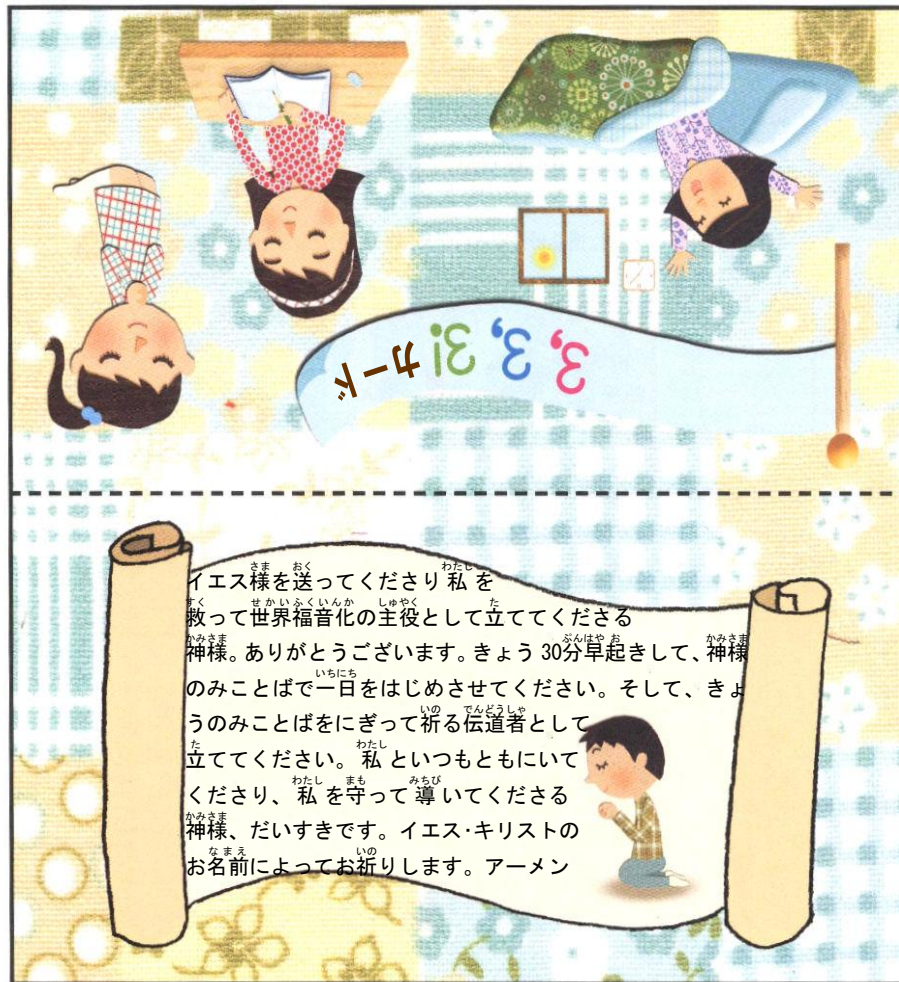 3, 3, 3! カード
イエス様を送ってくださり私を
救って世界福音化の主役として立ててくださる
神様。ありがとうございます。きょう30分早起きして、神様
のみことばで一日をはじめさせてください。そして、きょ
うのみことばをにぎって祈る伝道者として
立ててください。私といつもともにいて
くださり、私を守って導いてくださる
神様、だいすきです。イエス･キリストの
お名前によってお祈りします。アーメン